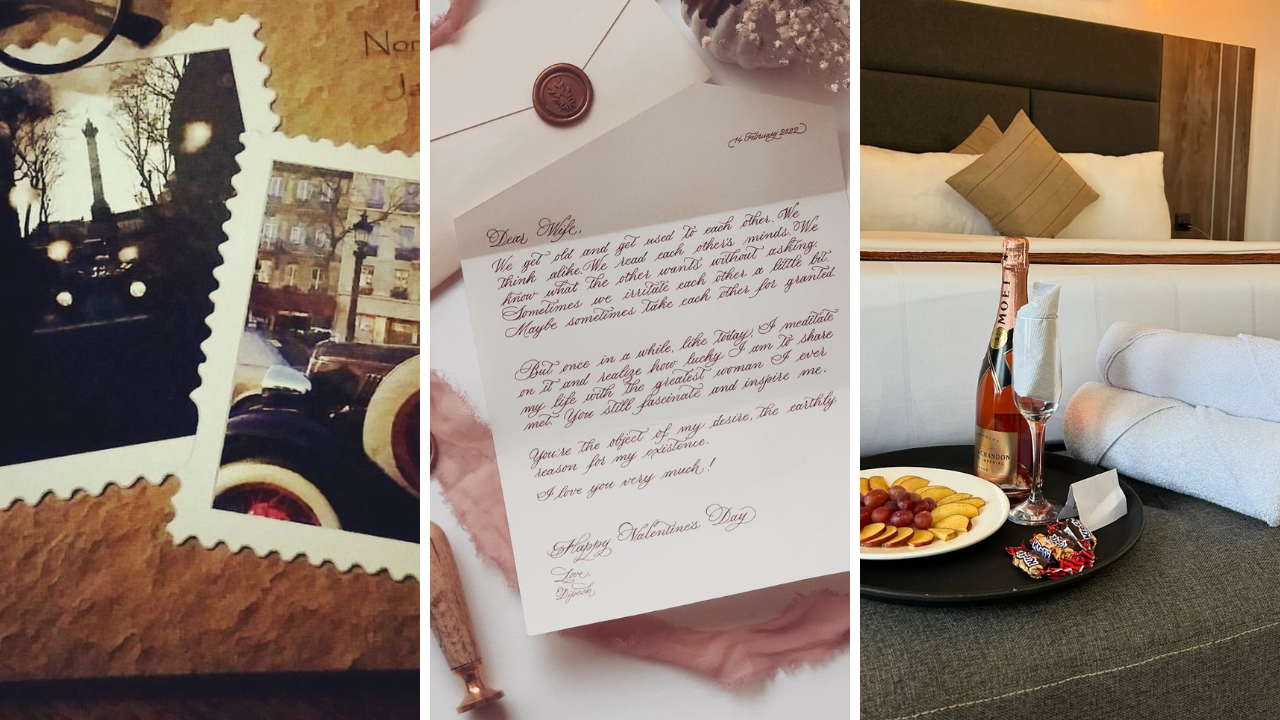 Nor
14 February 2022
Dear Wife,
We get old and get used to each other. We
think alike. We read each other's minds. We
know what the other wants without asking.
Sometimes we irritate each other a little bit.
Maybe sometimes take each other for granted.
But once in a while, like today, I meditate
on it and realize how lucky I am to share
my life with the greatest woman I ever
met. You still fascinate and inspire me.
You're the object of my desire, the earthly
reason for my existence.
I love you very much!
Happy Valentine's Day
Love,
Dipesh
MOËT
CHANDON